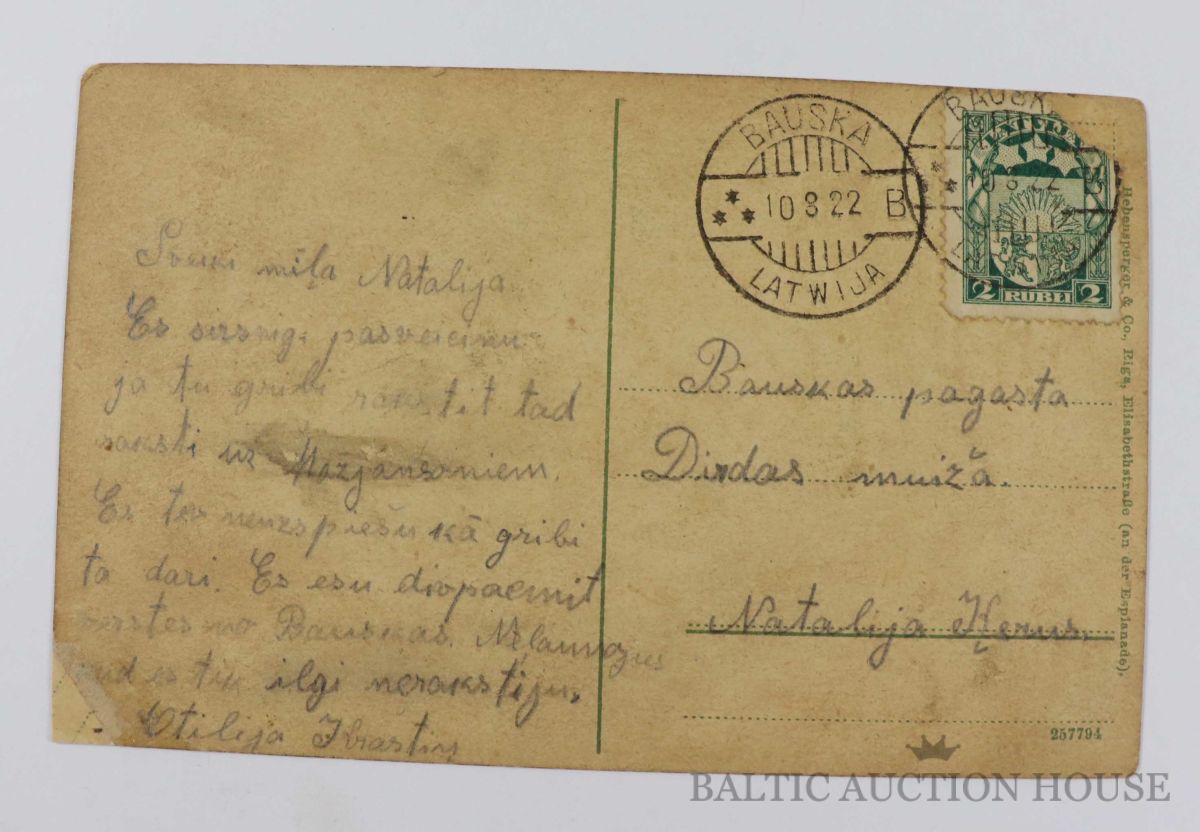 Sveiki miļa Natalija
Es sirsnigi pasveicinu
ja tu gribi rakstit tad
raksti uz Mazjansoniem.
Es tev neuzspiešu kā gribi
ta dari. Es esu
verstes no Bauskas.
kad es tik ilgi nerakstiju,
Otilija
BAUSKA
10 8 22 B
LATWIJA
BAUSKA
10 8 22 B
LATVIJA
2 RUBLI 2
Bauskas pagasta
Dirdas muiža.
Natalija Ķerus.
Hebensperger & Co., Riga, Elisabethstraße (an der Esplanade).
257794
BALTIC AUCTION HOUSE